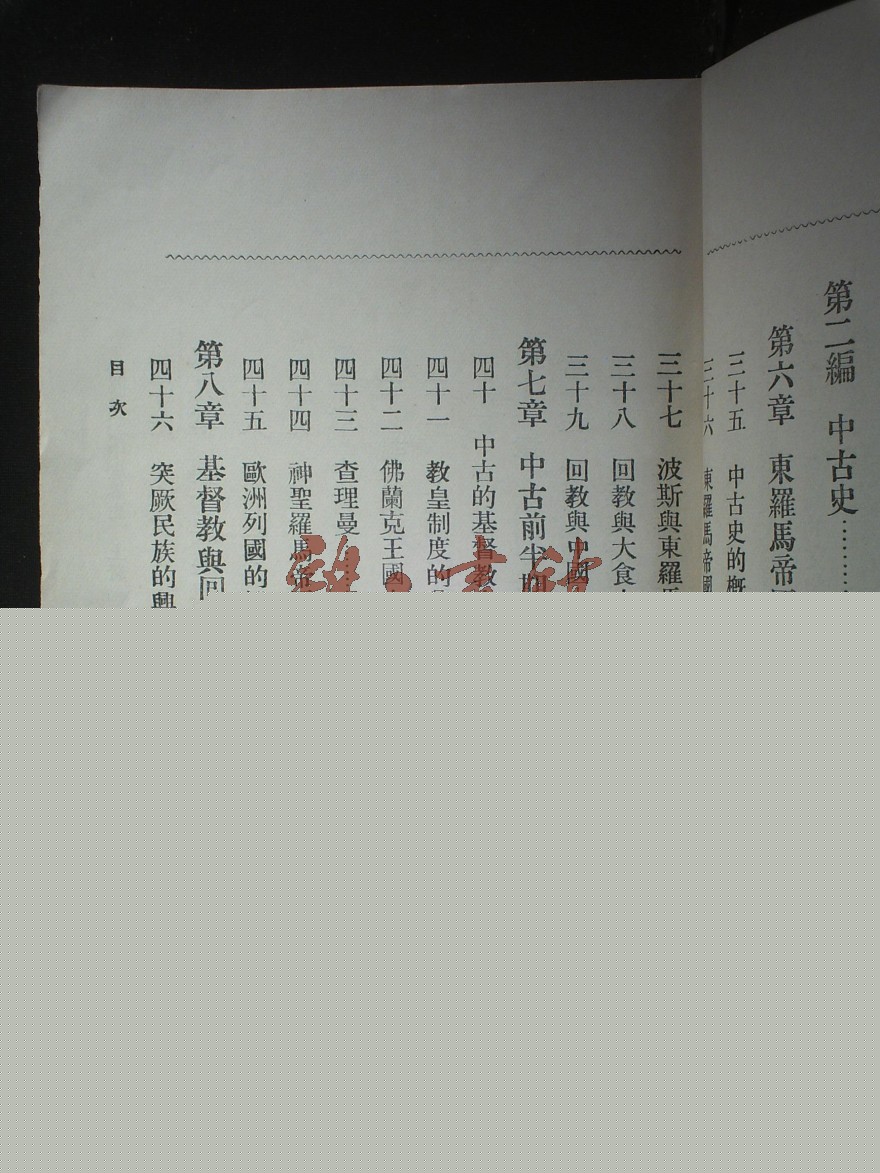 第二編 中古史………
第六章 東羅馬帝
三十五 中古史的概
三十六 東羅馬帝國
三十七 波斯與東羅馬
三十八 回教與大食
三十九 回教與中國
第七章 中古前半期
四十 中古的基督教
四十一 教皇制度的
四十二 佛蘭克王國
四十三 查理曼……
四十四 神聖羅馬帝
四十五 歐洲列國的
第八章 基督教與回
四十六 突厥民族的興
目次